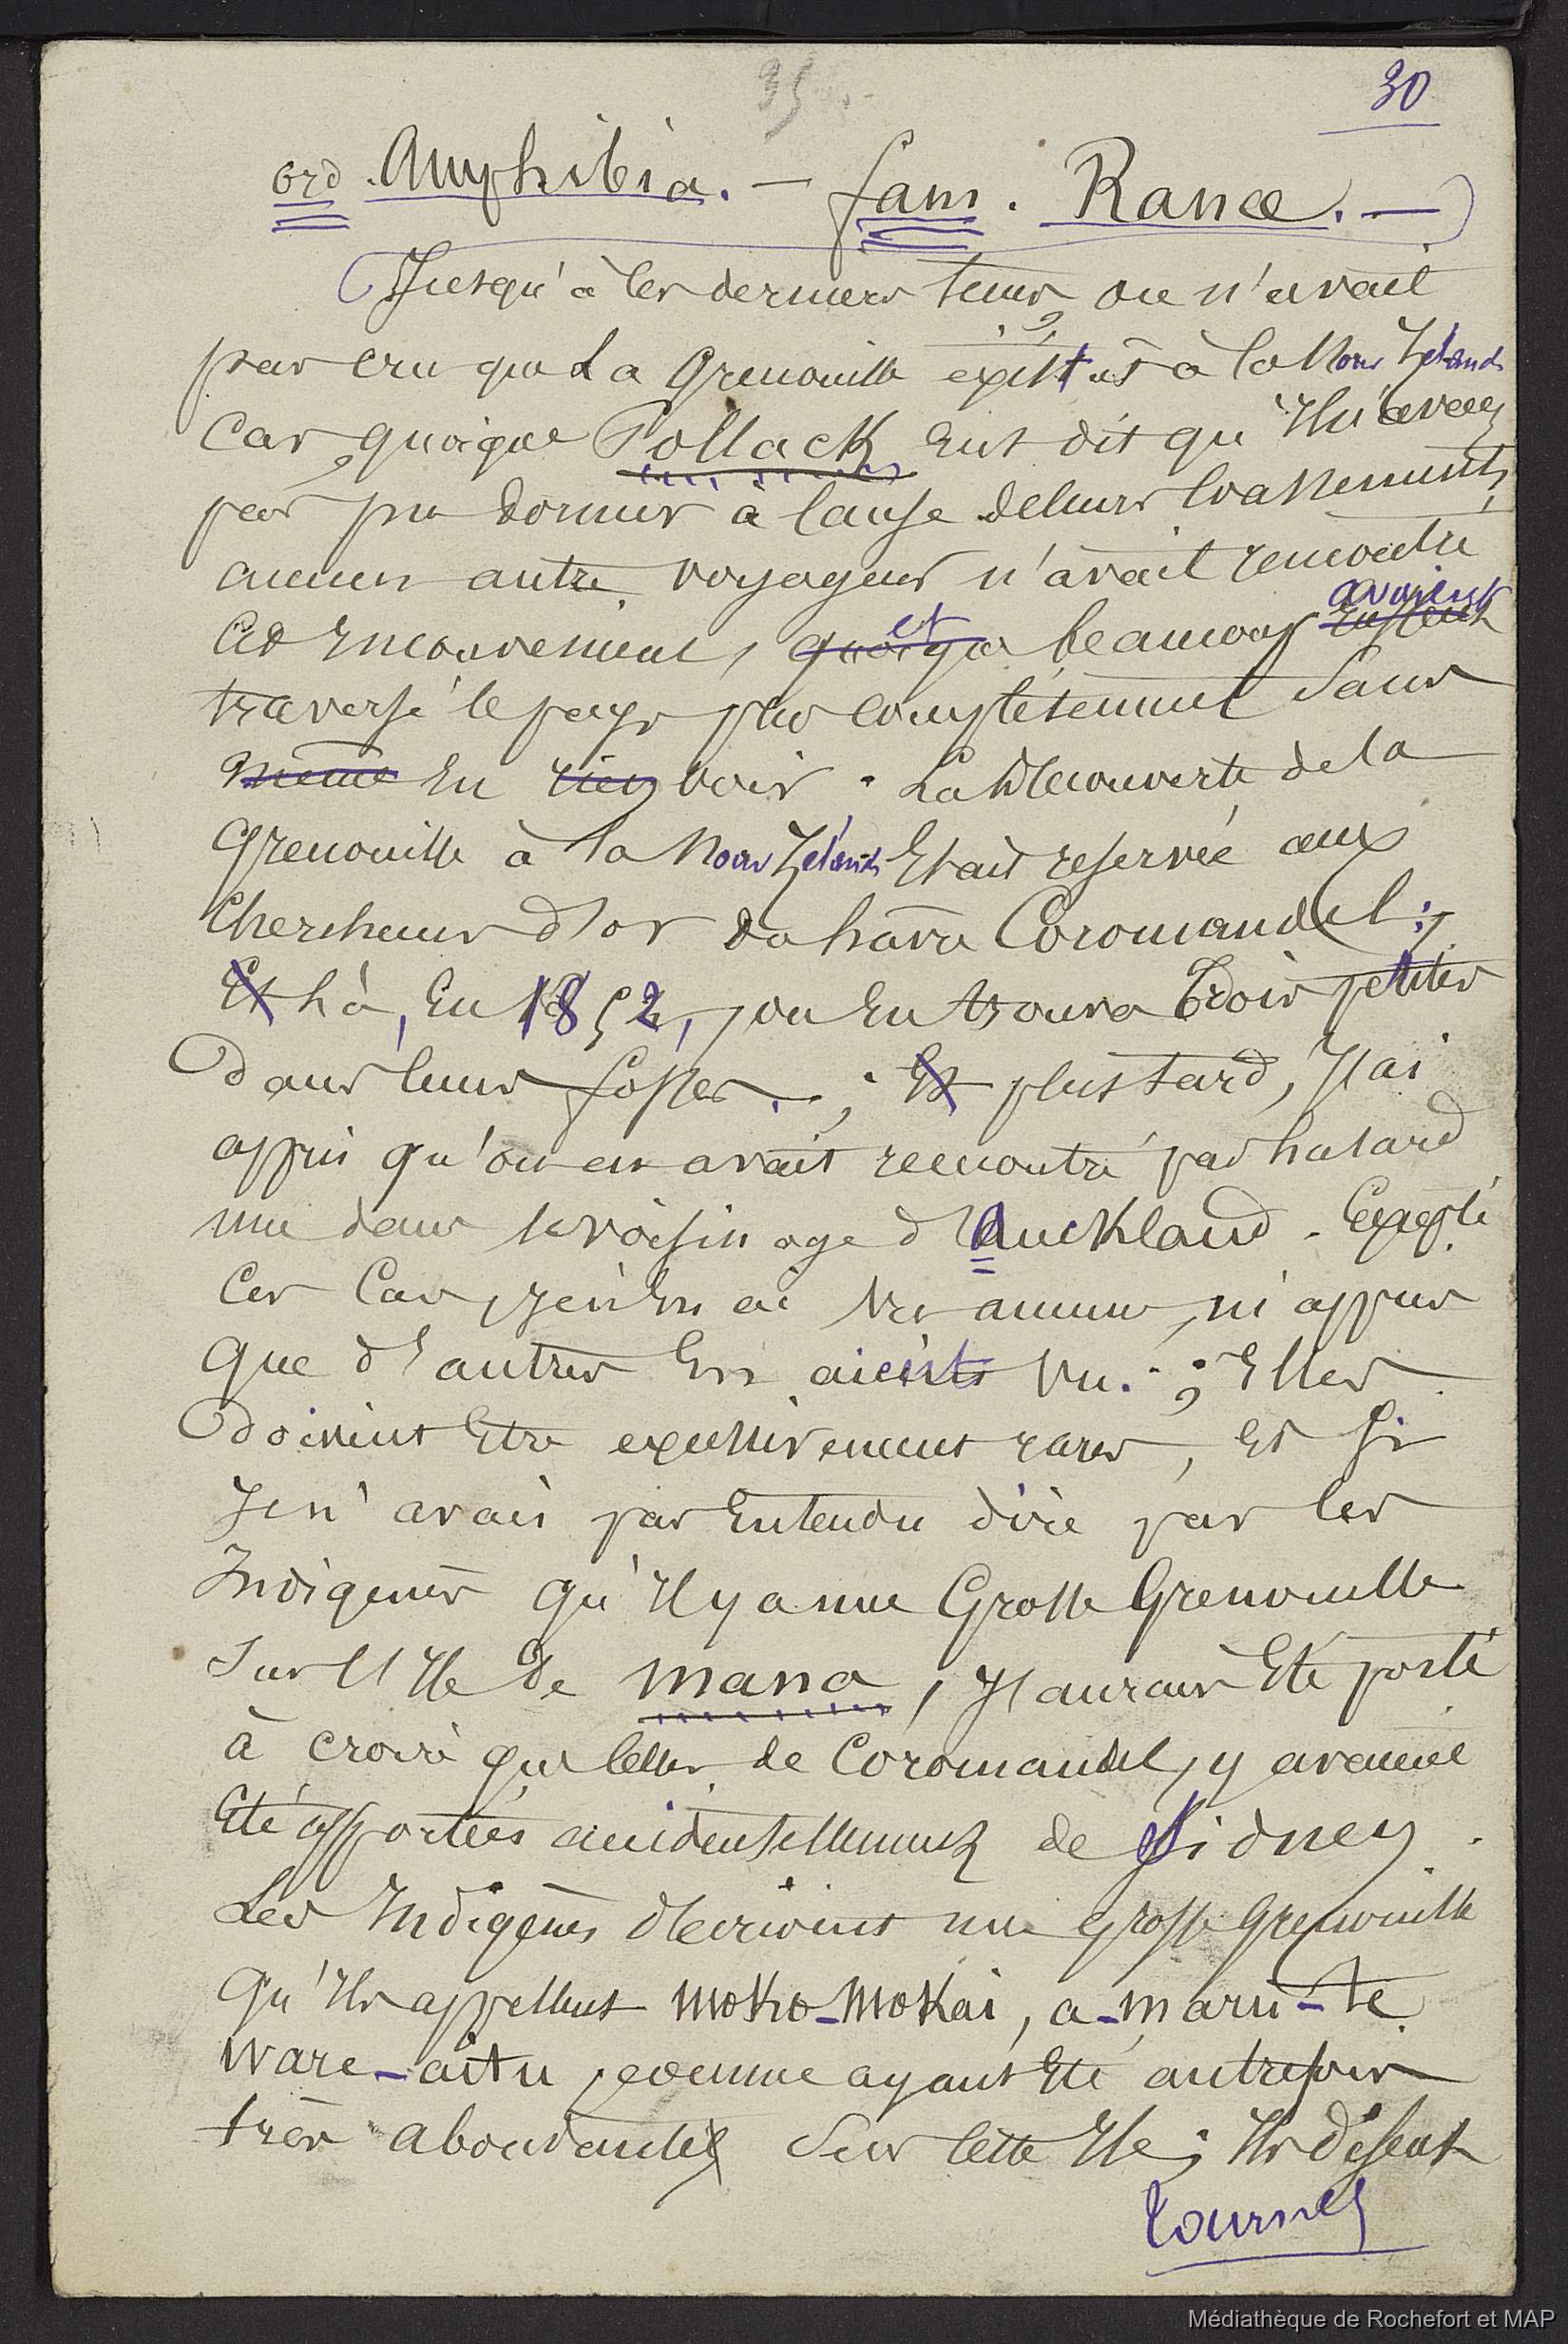 35
30
ord. Amphibia. — fam. Ranæ. —
Jusqu'à ces derniers tems, on n'avait
pas cru que La Grenouille existât à la Nouv Zélande
Car, quoique Pollack eut dit qu'Il n'avait
pas pu dormir à cause de leurs coassements,
aucun autre voyageur n'avait rencontré
cet Inconvénient, quoique et beaucoup eussent avaient
traversé le pays plus complétement sans
même en rien voir. La Découverte de la
Grenouille à la Nouv Zélande Etait reservée aux
Chercheurs d'or du havre Coromandel ;
Et Là, En 1852, on En trouva Trois petites
dans leurs fosses. ; Et plus tard, J'ai
appris qu'on en avait rencontré par hasard
une dans le voisinage d'Auckland. Excepté
ces Cas, je n'en ai vu aucune, ni appris
que d'autres En aient vu. ; Elles
doivent Etre excessivement rares, et si
Je n'avais pas Entendu dire par les
Indigenes qu'Il y a une Grosse Grenouille
sur l'Ile de mana, J'aurais Eté porté
à croire que celles de Coromandel, y avaient
Eté apportées accidentellement de Sidney.
Les Indigènes décrivent une grosse grenouille
qu'Ils appellent moko-mokai, a-maru-te
ware-aitu, comme ayant Eté autrefois
très abondante sur cette Ile ; Ils disent
tournez
Médiathèque de Rochefort et MAP